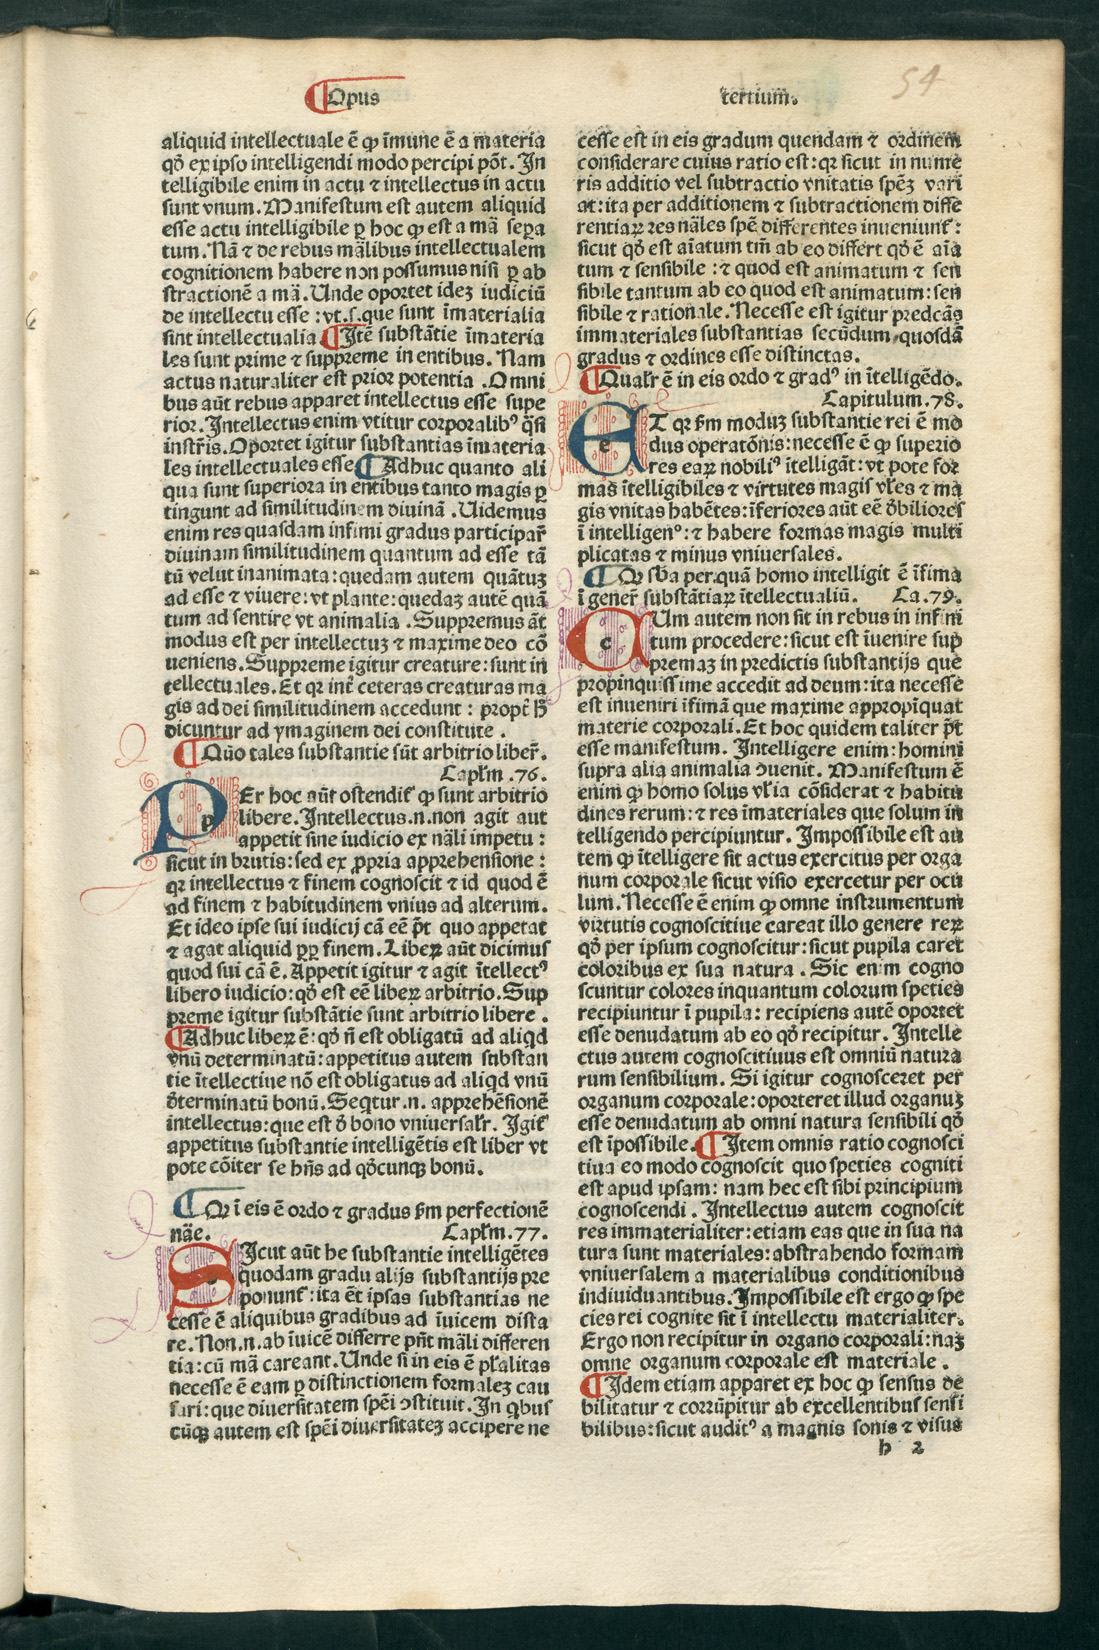 Opus
tertium.
54
aliquid intellectuale ē ꝙ īmune ē a materia
qḋ ex ipso intelligendi modo percipi pōt. In
telligibile enim in actu ⁊ intellectus in actu
sunt vnum. Manifestum est autem aliquid
esse actu intelligibile ꝑ hoc ꝙ est a mā sepa
tum. Nā ⁊ de rebus mālibus intellectualem
cognitionem habere non possumus nisi ꝑ ab
stractionē a mā. Unde oportet idez iudiciū
de intellectu esse : vt .s. que sunt īmaterialia
sint intellectualia ¶ Itē substātie īmateria
les sunt prime ⁊ suppreme in entibus. Nam
actus naturaliter est prior potentia . Omni
bus aūt rebus apparet intellectus esse supe
rior. Intellectus enim vtitur corporalibꝰ q̄si
instr̄is. Oportet igitur substantias īmateria
les intellectuales esse ¶ Adhuc quanto ali
qua sunt superiora in entibus tanto magis ꝑ
tingunt ad similitudinem diuinā . Uidemus
enim res quasdam infimi gradus participar̄
diuinam similitudinem quantum ad esse tā
tū velut inanimata : quedam autem quātuꝫ
ad esse ⁊ viuere : vt plante : quedaꝫ autē quā
tum ad sentire vt animalia . Suppremus āt
modus est per intellectuꝫ ⁊ maxime deo cō
ueniens. Suppreme igitur creature : sunt in
tellectuales. Et qꝛ int̄ ceteras creaturas ma
gis ad dei similitudinem accedunt : propt̄ h̄
dicuntur ad ymaginem dei constitute .
¶ Quō tales substantie sūt arbitrio liber̄.
Capl̄m .76.
PEr hoc aūt ostendit̄ ꝙ sunt arbitrio
libere. Intellectus .n. non agit aut
appetit sine iudicio ex nāli impetu :
sicut in brutis : sed ex ꝓpria apprehensione :
qꝛ intellectus ⁊ finem cognoscit ⁊ id quod ē
ad finem ⁊ habitudinem vnius ad alterum.
Et ideo ipse sui iudicij cā eē p̄t quo appetat
⁊ agat aliquid ꝓpꝑ finem. Libeꝝ aūt dicimus
quod sui cā ē. Appetit igitur ⁊ agit ītellectꝰ
libero iudicio : qḋ est eē libeꝝ arbitrio. Sup
preme igitur substātie sunt arbitrio libere .
¶ Adhuc libeꝝ ē : qḋ n̄ est obligatū ad aliqḋ
vnū determinatū : appetitus autem substan
tie ītellectiue nō est obligatus ad aliqḋ vnū
ḋterminatū bonū. Seqtur .n. apprehēsionē
intellectus : que est ḋ bono vniuersalr̄. Igit̄
appetitus substantie intelligētis est liber vt
pote cōiter se hn̄s ad qḋcunqꝫ bonū.
¶ Qꝛ ī eis ē ordo ⁊ gradus ẜm perfectionē
nāe. Capl̄m. 77.
SIcut aūt he substantie intelligētes
quodam gradu alijs substantijs pre
ponunt̄ : ita ēt ipsas substantias ne
cesse ē aliquibus gradibus ad īuicem dista
re. Non .n. ab īuicē differre pn̄t māli differen
tia : cū mā careant. Unde si in eis ē pl̄alitas
necesse ē eam ꝑ distinctionem formaleꝫ cau
sari : que diuersitatem spēi ↄstituit. In qbus
cūqꝫ autem est spēi diuersitateꝫ accipere ne
cesse est in eis gradum quendam ⁊ ordinem
considerare cuius ratio est : qꝛ sicut in nume
ris additio vel subtractio vnitatis spēꝫ vari
at : ita per additionem ⁊ subtractionem diffe
rentiaꝝ res nāles spē differentes inueniunt̄ :
sicut qḋ est aīatum tm̄ ab eo differt qḋ ē aīa
tum ⁊ sensibile : ⁊ quod est animatum ⁊ sen
sibile tantum ab eo quod est animatum : sen
sibile ⁊ rationale. Necesse est igitur predcās
immateriales substantias secūdum quosdā
gradus ⁊ ordines esse distinctas.
¶ Qualr̄ ē in eis ordo ⁊ gradꝰ in ītelligēdo.
Capitulum. 78.
ET qꝛ ẜm moduꝫ substantie rei ē mo
dus operatōnis : necesse ē ꝙ superio
res eaꝝ nobiliꝰ ītelligāt : vt pote for
mas ītelligibiles ⁊ virtutes magis vl̄es ⁊ ma
gis vnitas habētes : īferiores aūt eē ḋbiliores
ī intelligenꝰ : ⁊ habere formas magis multi
plicatas ⁊ minus vniuersales.
¶ Qꝛ sb̄a per quā homo intelligit ē īfima
ī gener̄ substātiaꝝ ītellectualiū. Ca .79.
CUm autem non sit in rebus in infini
tum procedere : sicut est īuenire sup
premaꝫ in predictis substantijs que
propinquissime accedit ad deum : ita necesse
est inueniri īfimā que maxime appropīquat
materie corporali. Et hoc quidem taliter p̄t
esse manifestum. Intelligere enim : homini
supra alia animalia ↄuenit. Manifestum ē
enim ꝙ homo solus vl̄ia cōsiderat ⁊ habitu
dines rerum : ⁊ res īmateriales que solum in
telligendo percipiuntur. Impossibile est au
tem ꝙ ītelligere sit actus exercitus per orga
num corporale sicut visio exercetur per ocu
lum. Necesse ē enim ꝙ omne instrumentum
virtutis cognoscitiue careat illo genere reꝝ
qḋ per ipsum cognoscitur : sicut pupila caret
coloribus ex sua natura . Sic enim cogno
scuntur colores inquantum colorum speties
recipiuntur ī pupila : recipiens autē oportet
esse denudatum ab eo qḋ recipitur. Intelle
ctus autem cognoscitiuus est omniū natura
rum sensibilium. Si igitur cognosceret per
organum corporale : oporteret illud organuꝫ
esse denudatum ab omni natura sensibili qḋ
est īpossibile. ¶ Item omnis ratio cognosci
tiua eo modo cognoscit quo speties cogniti
est apud ipsam : nam hec est sibi principium
cognoscendi . Intellectus autem cognoscit
res immaterialiter : etiam eas que in sua na
tura sunt materiales : abstrahendo formam
vniuersalem a materialibus conditionibus
indiuiduantibus. Impossibile est ergo ꝙ spe
cies rei cognite sit ī intellectu materialiter.
Ergo non recipitur in organo corporali : naꝫ
omne organum corporale est materiale .
¶ Idem etiam apparet ex hoc ꝙ sensus de
bilitatur ⁊ corrūpitur ab excellentibus sensi
bilibus : sicut auditꝰ a magnis sonis ⁊ visus
h 2